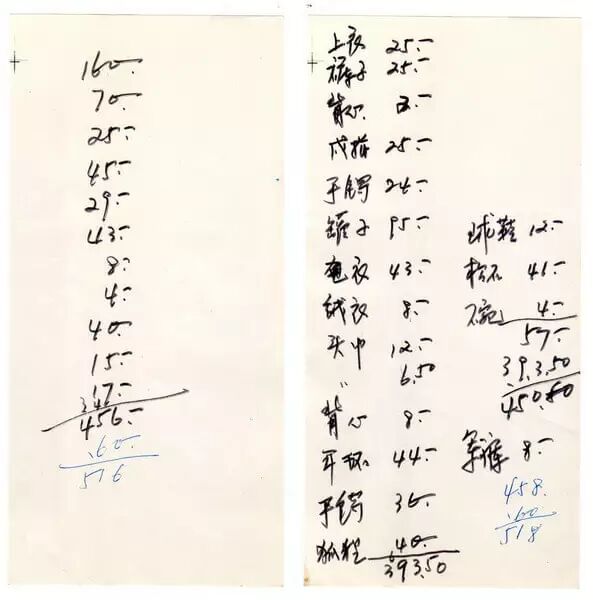 160.-
70.-
25.-
45.-
29.-
43.-
8.-
4.-
40.-
15.-
17.-
456.-
60.-
516
上衣 25.-
裤子 25.-
背心 2.-
25.-
手镯 24.-
罐子 95.-
43.-
绒衣 8.-
头巾 12.-
〃 6.50
背心 8.-
耳环 44.-
手镯 36.-
狐狸 40.-
393.50
球鞋 12.-
松石 41.-
4.-
57.-
393.50
450.50
军裤 8.-
458.
60
518